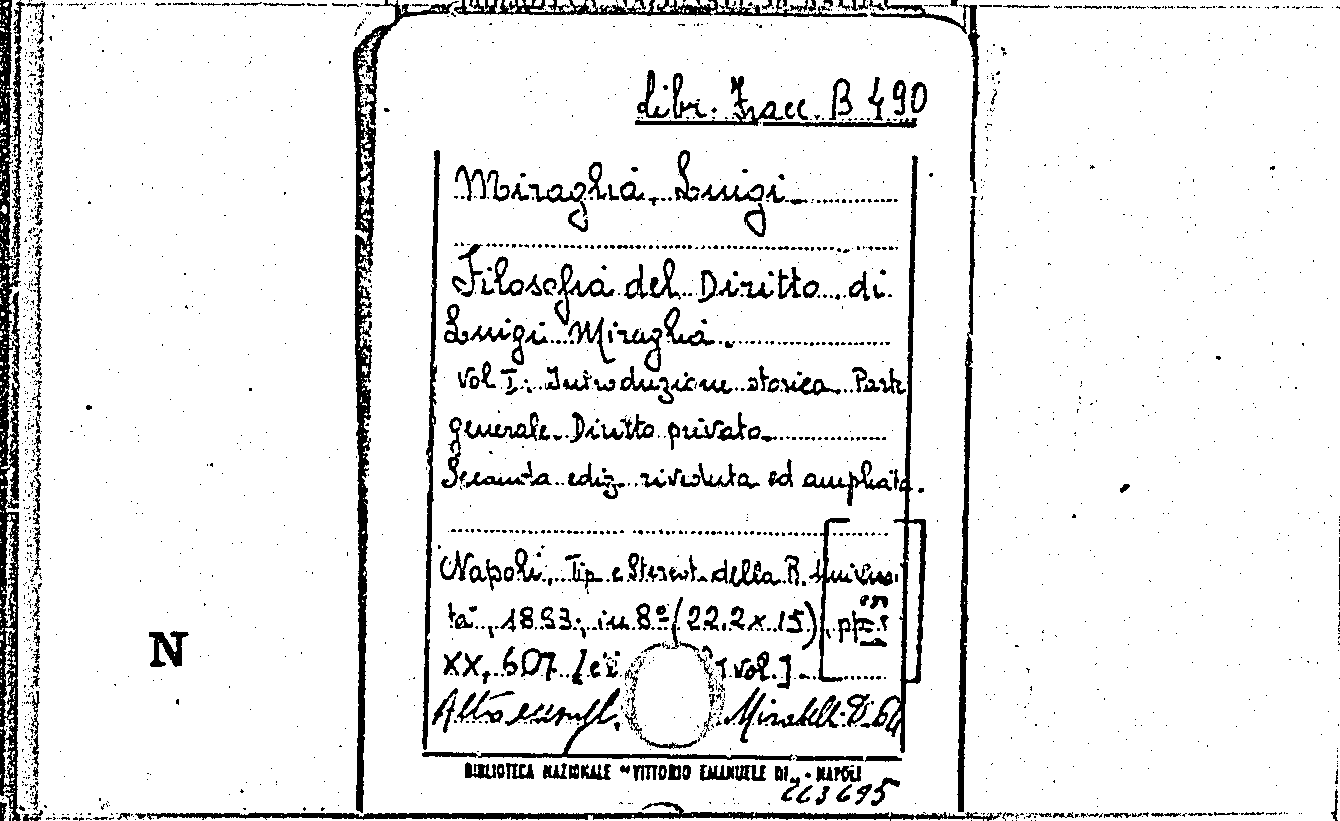 Libr. Fracc. B 490
Miraglia, Luigi
Filosofia del Diritto di
Luigi Miraglia.
Vol I: Introduzione storica Parte
generale. Diritto privato
Seconda ediz. riveduta ed ampliata.
Napoli, Tip e Stereot. della R. Universi
tà, 1893; in 8º (22.2 x 15), pp.
XX, 607 vol.]
Altro esempl. Miratelli B. 64
N
BIBLIOTECA NAZIONALE "VITTORIO EMANUELE III" - NAPOLI
663695